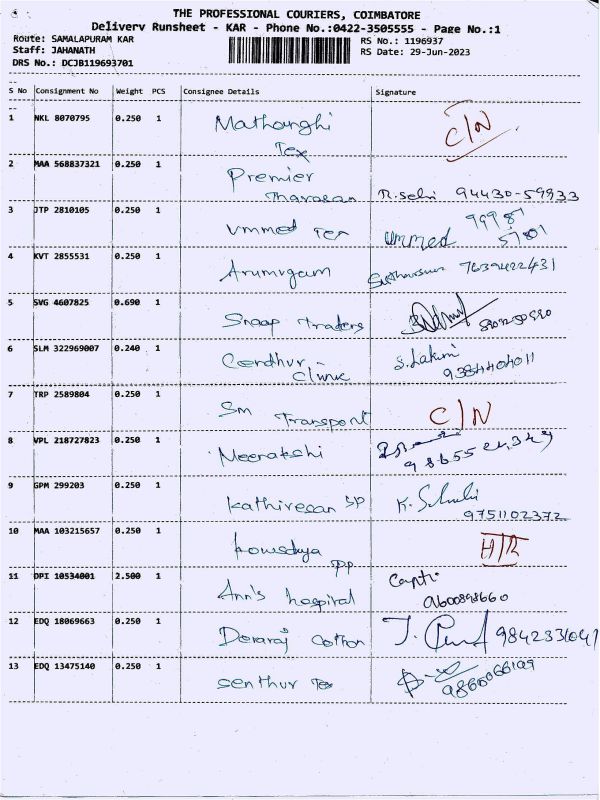 THE PROFESSIONAL COURIERS, COIMBATORE
Delivery Runsheet - KAR - Phone No.:0422-3505555 - Page No.:1
Route: SAMALAPURAM KAR
RS No.: 1196937
Staff: JAHANATH
RS Date: 29-Jun-2023
DRS No.: DCJB119693701
S No Consignment No Weight PCS Consignee Details Signature
1 NKL 8070795 0.250 1 Mathanghi Tex C/N
2 MAA 568837321 0.250 1 Premier R.selvi 94430-59933
3 JTP 2810105 0.250 1 ummed Tex ummed 99987 57801
4 KVT 2855531 0.250 1 Arumugam 7639422431
5 SVG 4607825 0.690 1 Snaap traders
6 SLM 322969007 0.240 1 Clinic S.Laxmi 9384404011
7 TRP 2589804 0.250 1 Sm Transport C/N
8 VPL 218727823 0.250 1 Meenakshi
9 GPM 299203 0.250 1 Kathiresan SP 9751102372
10 MAA 103215657 0.250 1 kowsalya PP
11 DPI 10534001 2.500 1 Ann's hospital 9600898660
12 EDQ 18069663 0.250 1 Devaraj Cotton 9842331041
13 EDQ 13475140 0.250 1 senthur Tex